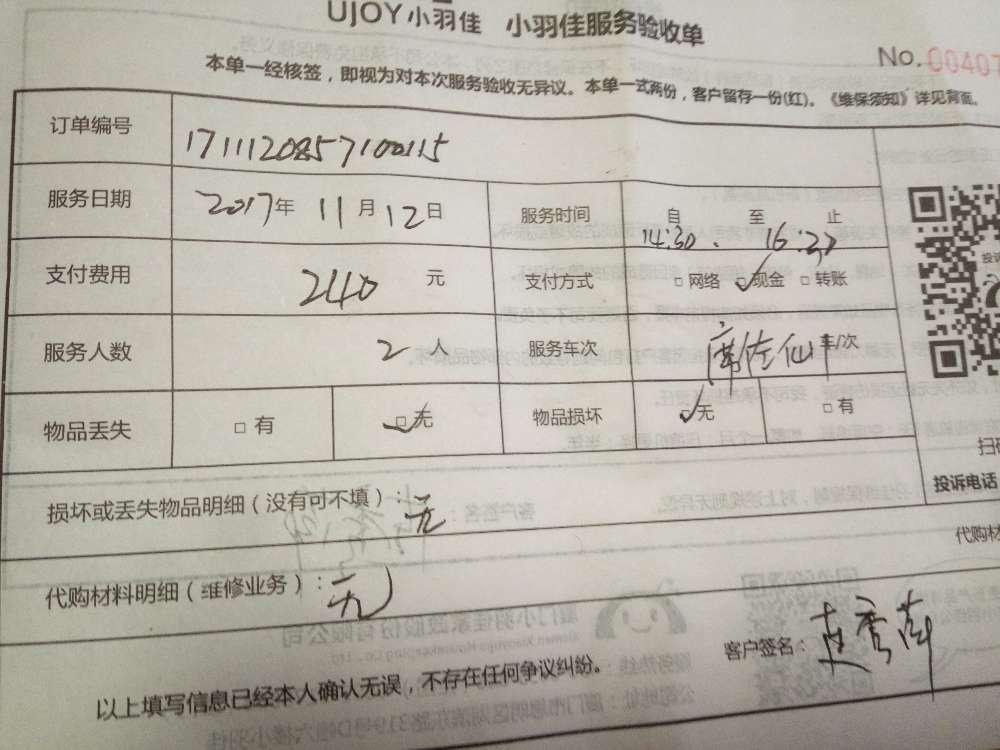 UJOY小羽佳 小羽佳服务验收单
No. 00407
本单一经核签，即视为对本次服务验收无异议。本单一式两份，客户留存一份(红)。《维保须知》详见背面。
订单编号 1711120857100115
服务日期 2017年 11月12日 服务时间 自 至 止
14:30. 16:30
支付费用 240 元 支付方式 □网络 ☑现金 □转账
服务人数 2 人 服务车次 车/次
物品丢失 □有 ☑无 物品损坏 ☑无 □有
扫
投诉电话
损坏或丢失物品明细（没有可不填）：无
代购材
代购材料明细（维修业务）：无
客户签名：
以上填写信息已经本人确认无误，不存在任何争议纠纷。